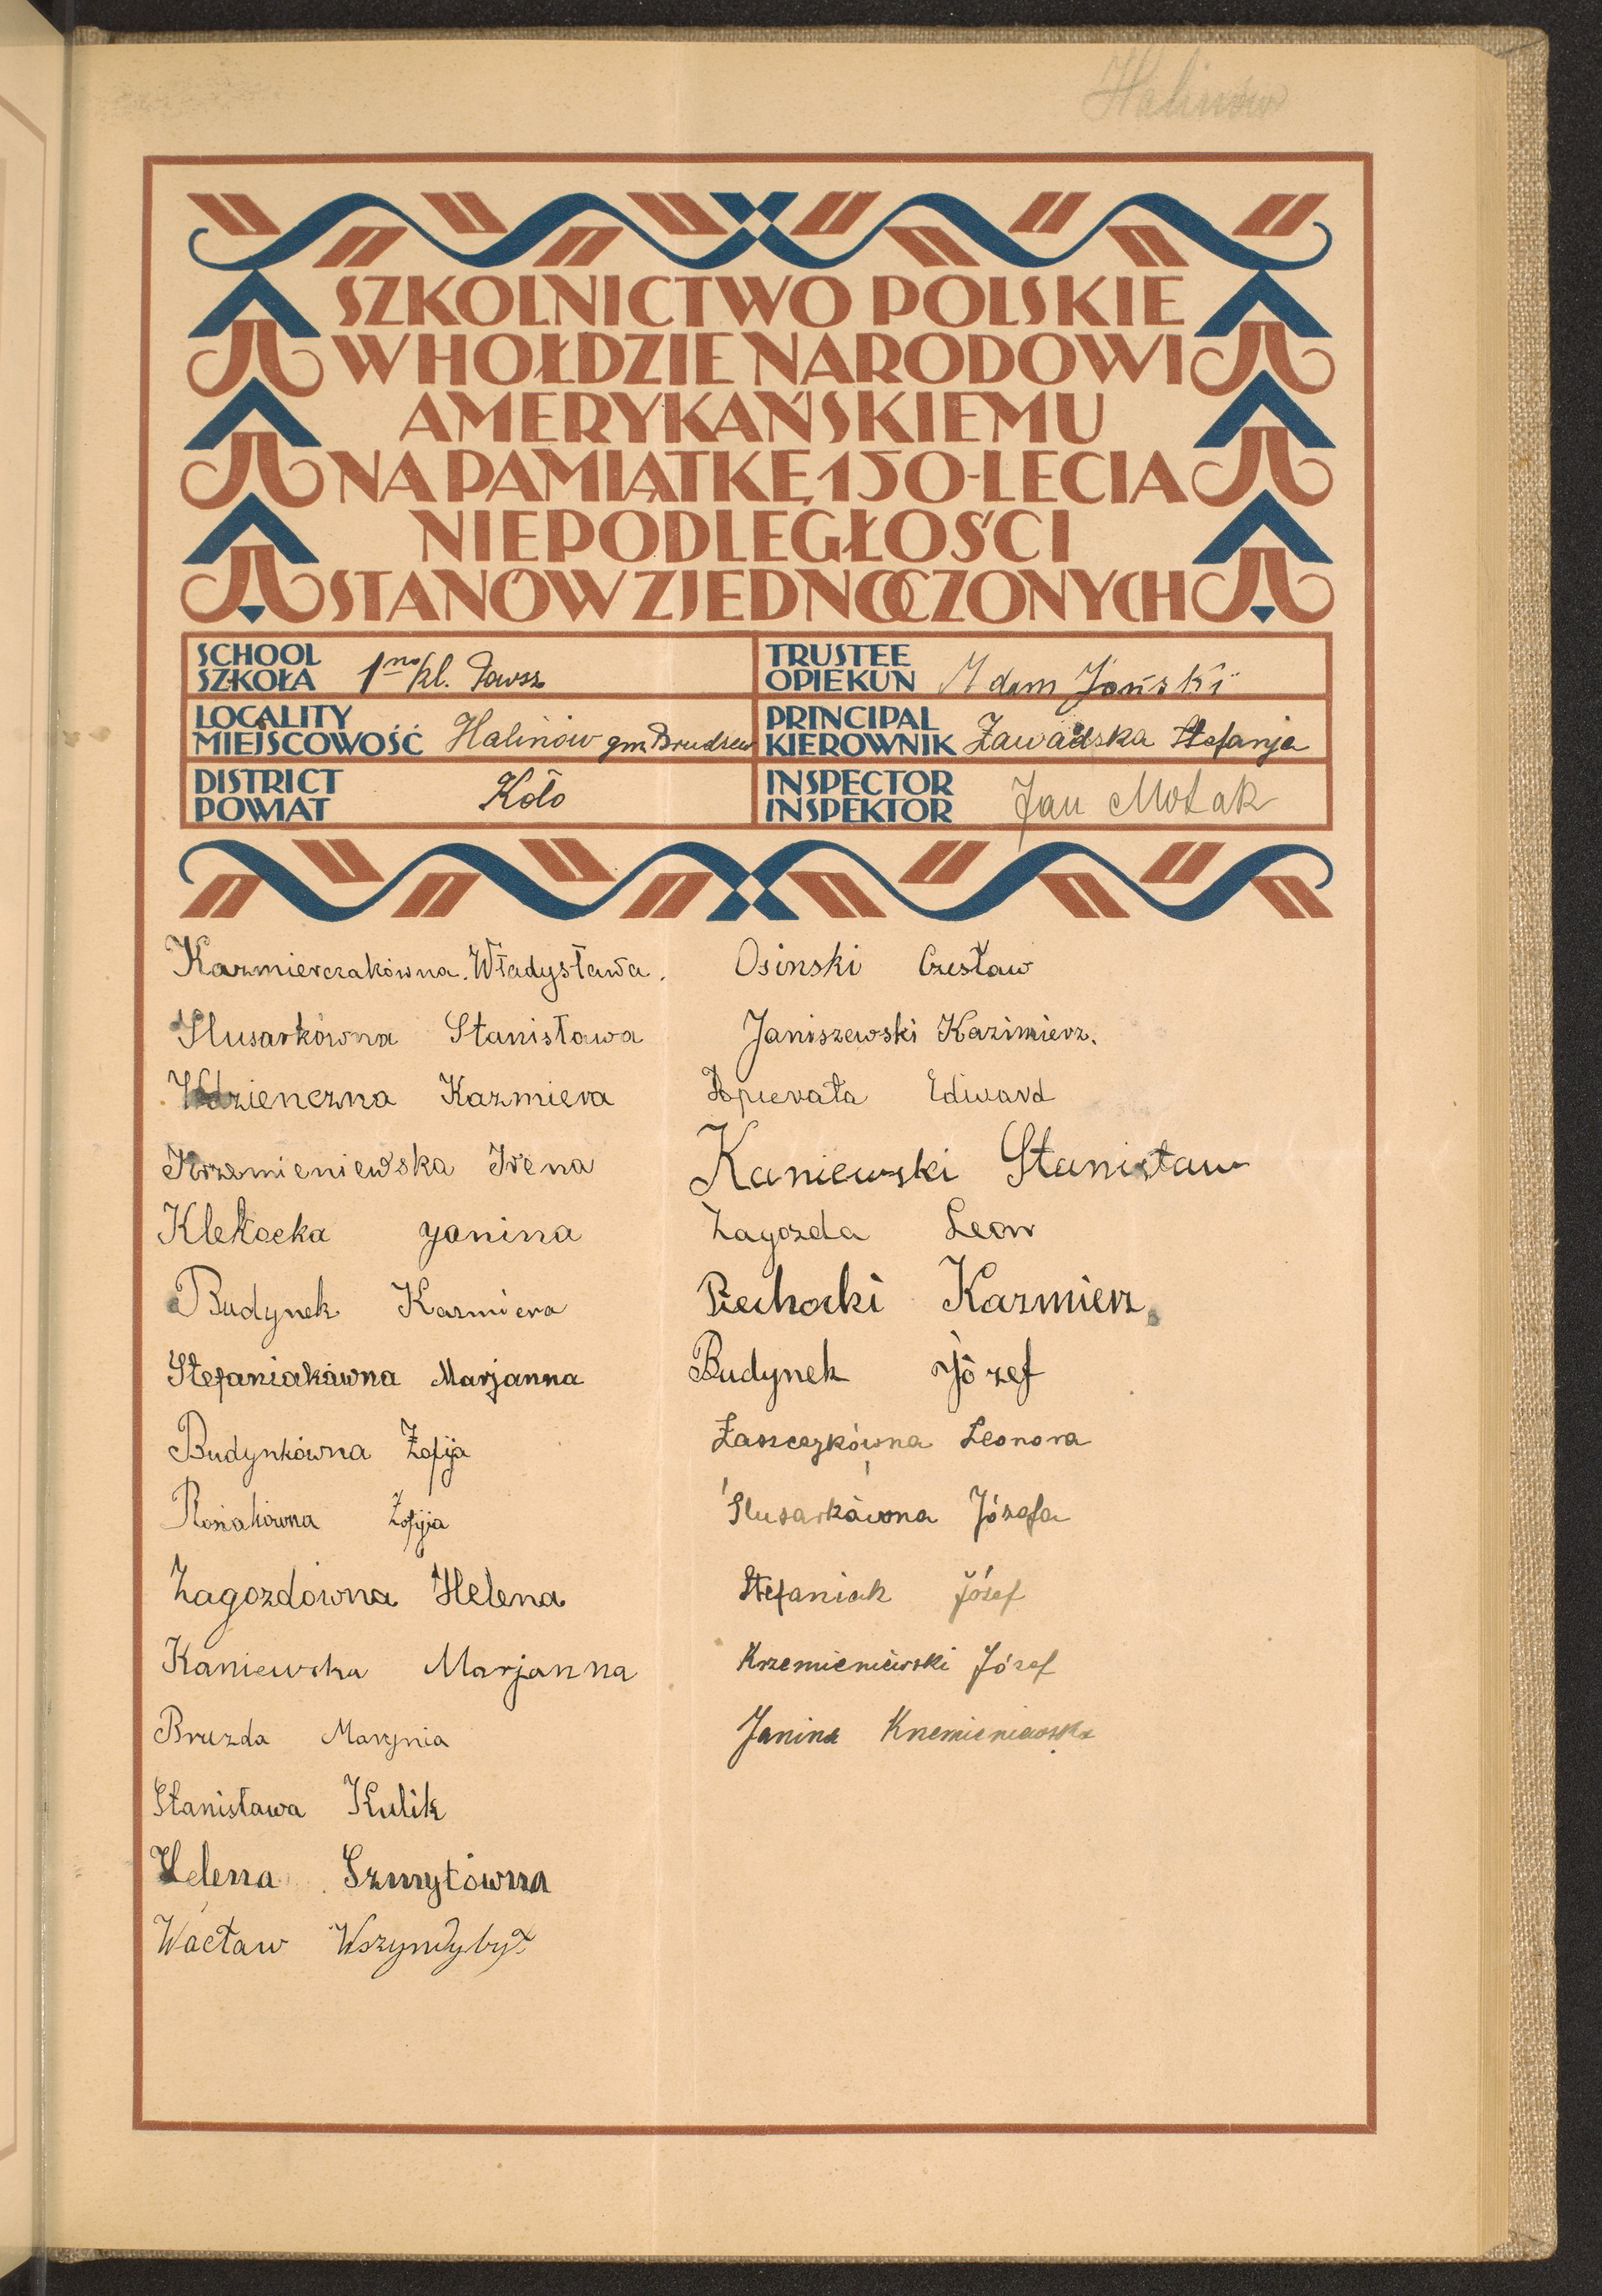 Halinów
SZKOLNICTWO POLSKIE
W HOŁDZIE NARODOWI
AMERYKAŃSKIEMU
NA PAMIĄTKĘ 150-LECIA
NIEPODLEGŁOŚCI
STANÓW ZJEDNOCZONYCH
SCHOOL
SZKOŁA 1no kl. Powsz
TRUSTEE
OPIEKUN Adam Joński
LOCALITY
MIEJSCOWOŚĆ Halinów gm. Brudzew
PRINCIPAL
KIEROWNIK Zawadzka Stefanja
DISTRICT
POWIAT Koło
INSPECTOR
INSPEKTOR Jan
Kazmierczakówna. Władysława.
Slusarkówna Stanisława
Wdzienczna Kazmiera
Krzemieniewska Irena
Klekocka Janina
Budynek Kazmiera
Stefaniakówna Marjanna
Budynkówna Zofija
Zofyja
Zagozdówna Helena
Kaniewska Marjanna
Bruzda Marynia
Stanisława Kulik
Helena Szmytówna
Wacław Wszyndybył
Osinski Czesław
Janiszewski Kazimierz.
Edward
Kaniewski Stanisław
Zagozda Leon
Piechocki Kazmierz.
Budynek Józef
Łaszczykówna Leonora
Ślusarkówna Józefa
Stefaniak Józef
Krzemieniewski Józef
Janina Krzemieniewska